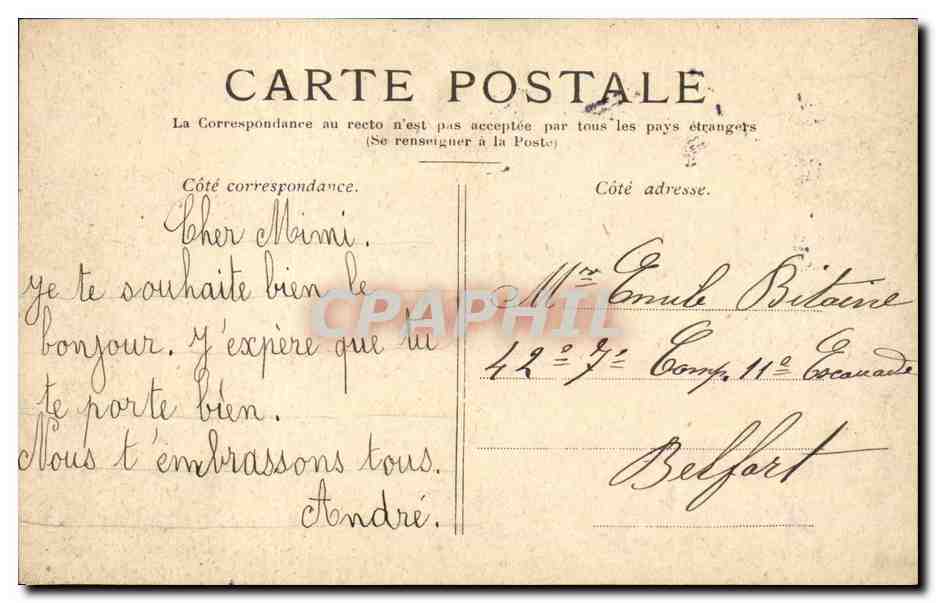 CARTE POSTALE
La Correspondance au recto n'est pas acceptée par tous les pays étrangers
(Se renseigner à la Poste)
Côté correspondance.
Cher Mimi.
Je te souhaite bien le
bonjour. J'expère que tu
te porte bien.
Nous t'embrassons tous.
André.
Côté adresse.
Mr Emile Bitaine
42e 7e Comp. 11e Escouade
Belfort
CPAPHIL